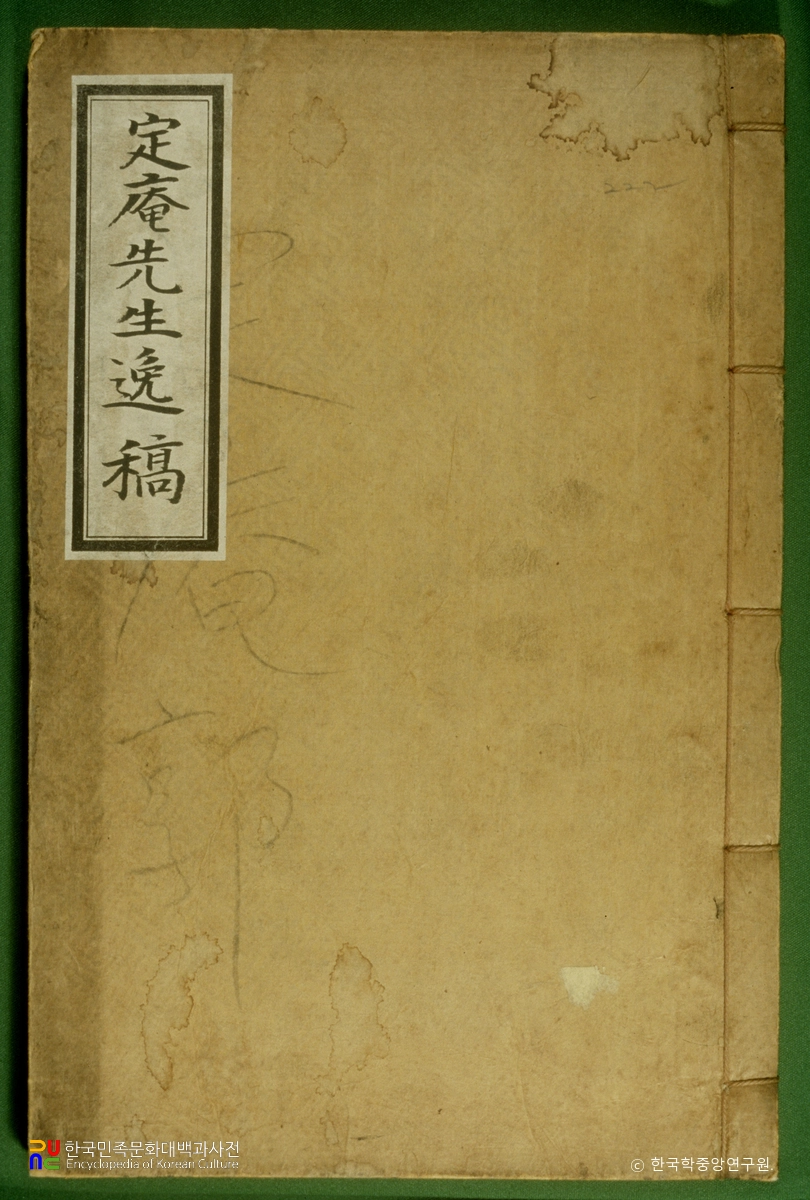 定庵先生逸稿
222
定庵郭
한국민족문화대백과사전
Encyclopedia of Korean Culture
ⓒ 한국학중앙연구원.